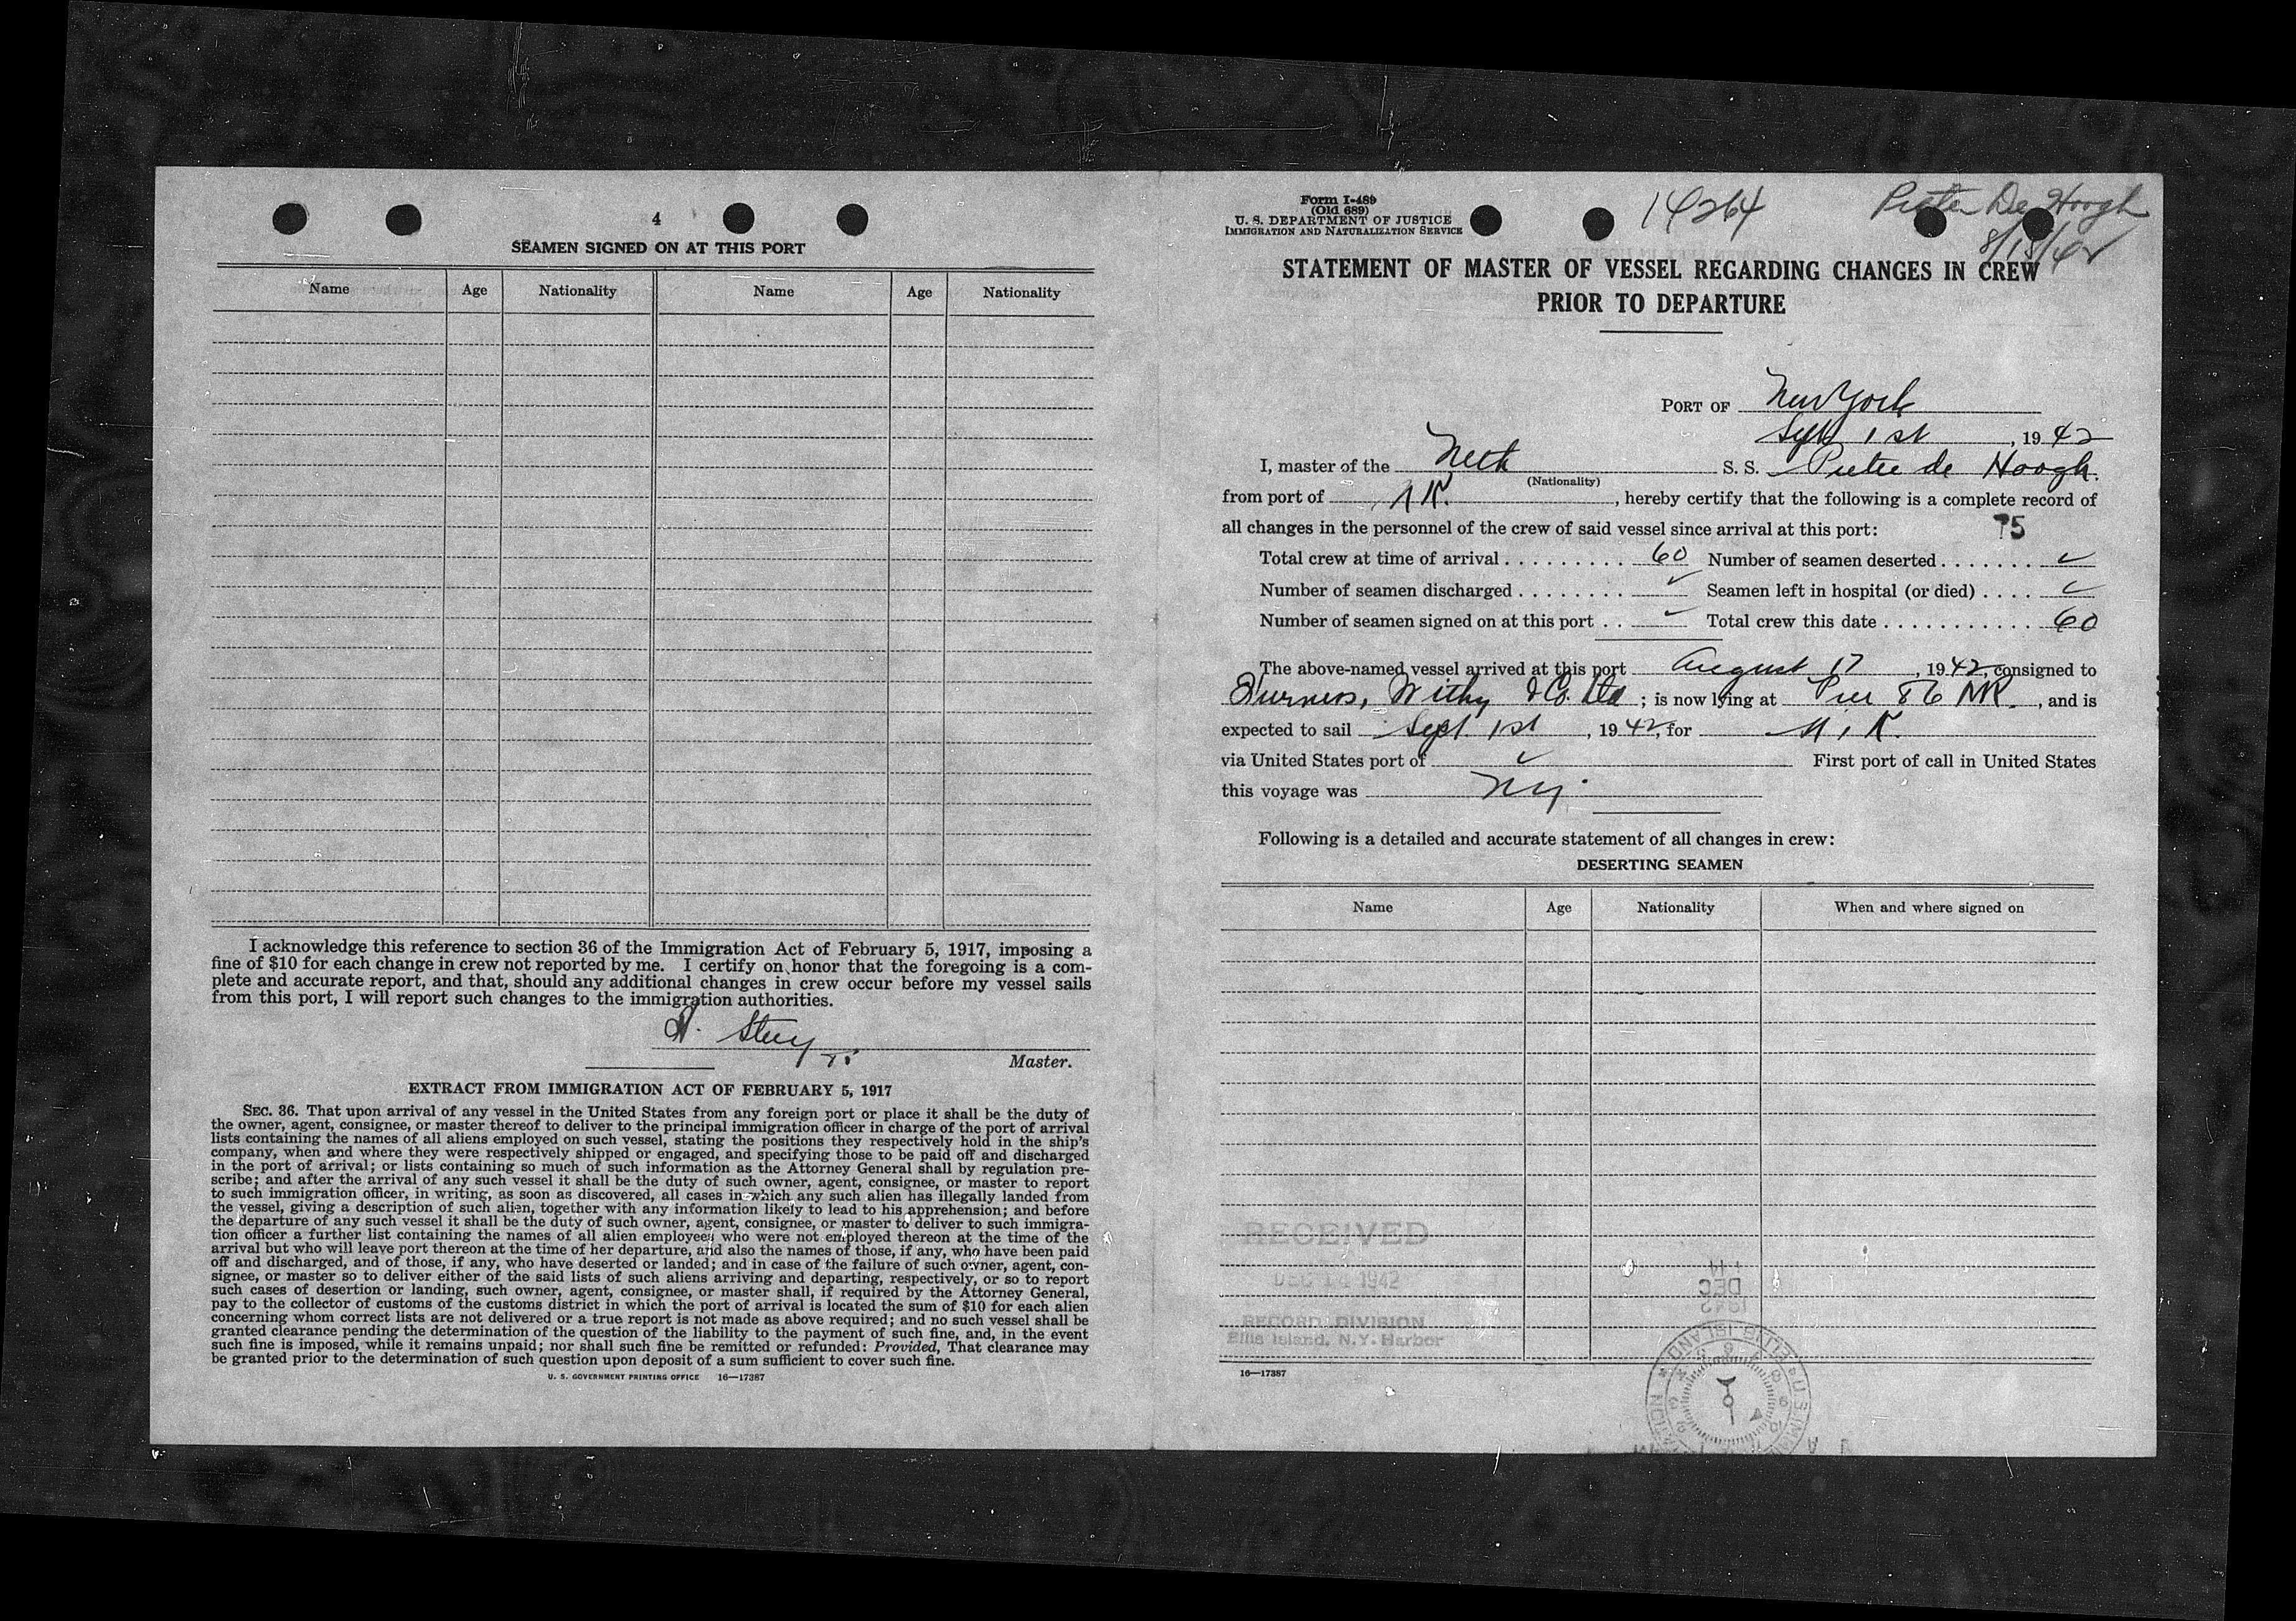 4
SEAMEN SIGNED ON AT THIS PORT
Name Age Nationality Name Age Nationality
I acknowledge this reference to section 36 of the Immigration Act of February 5, 1917, imposing a
fine of $10 for each change in crew not reported by me. I certify on honor that the foregoing is a com-
plete and accurate report, and that, should any additional changes in crew occur before my vessel sails
from this port, I will report such changes to the immigration authorities.
Master.
EXTRACT FROM IMMIGRATION ACT OF FEBRUARY 5, 1917
SEC. 36. That upon arrival of any vessel in the United States from any foreign port or place it shall be the duty of
the owner, agent, consignee, or master thereof to deliver to the principal immigration officer in charge of the port of arrival
lists containing the names of all aliens employed on such vessel, stating the positions they respectively hold in the ship's
company, when and where they were respectively shipped or engaged, and specifying those to be paid off and discharged
in the port of arrival; or lists containing so much of such information as the Attorney General shall by regulation pre-
scribe; and after the arrival of any such vessel it shall be the duty of such owner, agent, consignee, or master to report
to such immigration officer, in writing, as soon as discovered, all cases in which any such alien has illegally landed from
the vessel, giving a description of such alien, together with any information likely to lead to his apprehension; and before
the departure of any such vessel it shall be the duty of such owner, agent, consignee, or master to deliver to such immigra-
tion officer a further list containing the names of all alien employees who were not employed thereon at the time of the
arrival but who will leave port thereon at the time of her departure, and also the names of those, if any, who have been paid
off and discharged, and of those, if any, who have deserted or landed; and in case of the failure of such owner, agent, con-
signee, or master so to deliver either of the said lists of such aliens arriving and departing, respectively, or so to report
such cases of desertion or landing, such owner, agent, consignee, or master shall, if required by the Attorney General,
pay to the collector of customs of the customs district in which the port of arrival is located the sum of $10 for each alien
concerning whom correct lists are not delivered or a true report is not made as above required; and no such vessel shall be
granted clearance pending the determination of the question of the liability to the payment of such fine, and, in the event
such fine is imposed, while it remains unpaid; nor shall such fine be remitted or refunded: Provided, That clearance may
be granted prior to the determination of such question upon deposit of a sum sufficient to cover such fine.
U. S. GOVERNMENT PRINTING OFFICE 16—17387
Form I-489
(Old 689)
U. S. DEPARTMENT OF JUSTICE
IMMIGRATION AND NATURALIZATION SERVICE
14264
Pieter De Hoogh
8/18/42
STATEMENT OF MASTER OF VESSEL REGARDING CHANGES IN CREW
PRIOR TO DEPARTURE
PORT OF New York
Sept 1st, 1942
I, master of the Neth S. S. Pieter de Hoogh.
(Nationality)
from port of , hereby certify that the following is a complete record of
all changes in the personnel of the crew of said vessel since arrival at this port: 75
Total crew at time of arrival . . . . . . . . . 60 Number of seamen deserted . . . . . . . ✓
Number of seamen discharged . . . . . . . . ✓ Seamen left in hospital (or died) . . . . ✓
Number of seamen signed on at this port . . ✓ Total crew this date . . . . . . . . . . . . 60
The above-named vessel arrived at this port August 17, 1942, consigned to
Furness, Withy & Co. Ltd; is now lying at Pier 86 NR., and is
expected to sail Sept 1st, 1942, for
via United States port of ✓ First port of call in United States
this voyage was Ny.
Following is a detailed and accurate statement of all changes in crew:
DESERTING SEAMEN
Name Age Nationality When and where signed on
RECEIVED
DEC 14 1942
RECORD DIVISION
Ellis Island, N.Y. Harbor
14
DEC
1942
16—17387